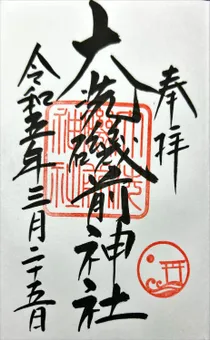 奉拝
大洗磯前神社
令和五年三月二十五日